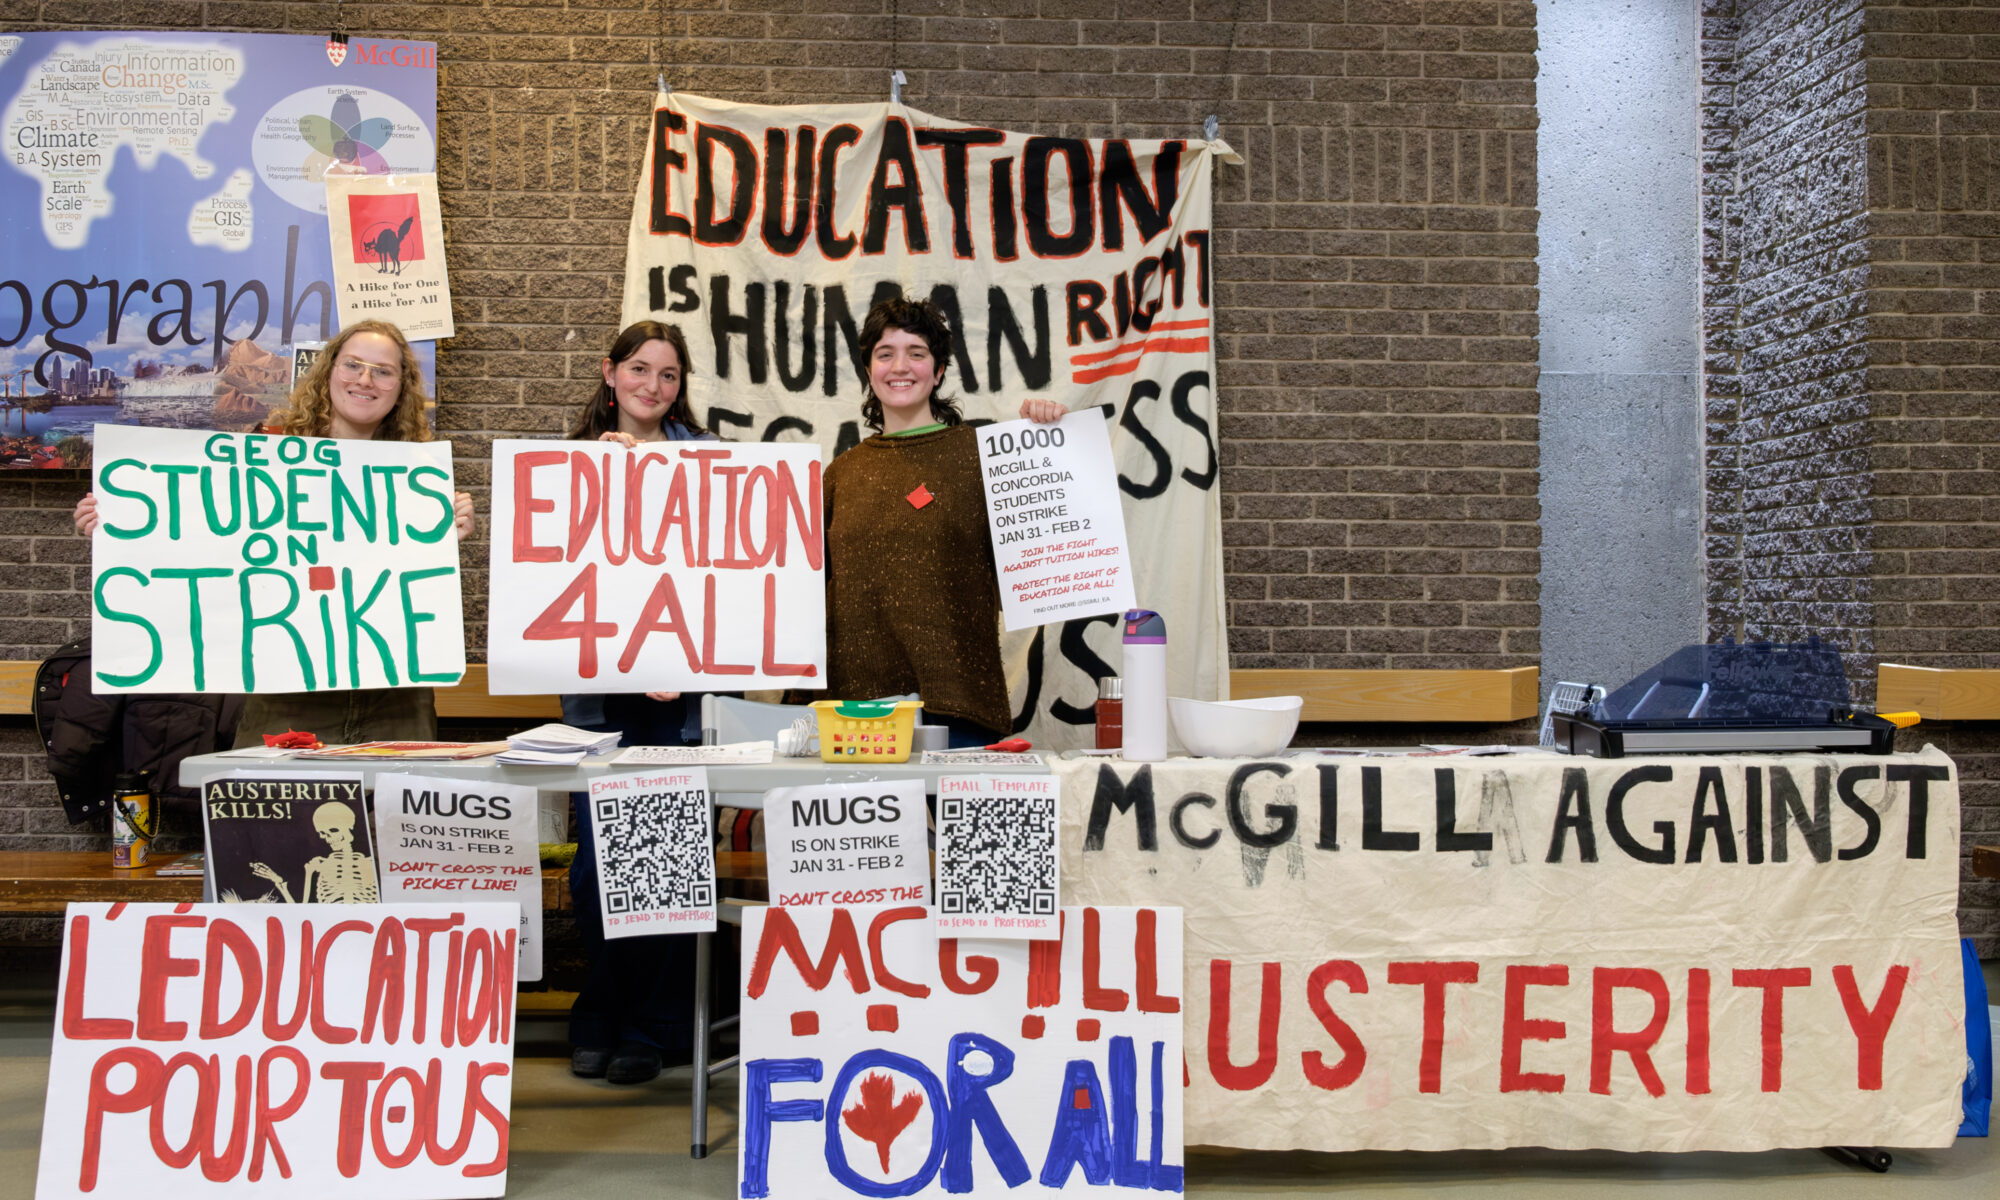 McGill
Information
Change
Injury
Canada
Landscape
M.Sc.
M.A.
Ecosystem
Data
GIS
B.Sc.
Environmental
Climate
Remote Sensing
Ph.D.
B.A.
System
Earth
Scale
Hydrology
GPS
Process
GIS
Global
Earth System
Science
Political, Urban,
Economic and
Health Geography
Land Surface
Processes
Environmental
Management
ograph
A Hike for One
is
a Hike for All
EDUCATION
IS A HUMAN RIGHT
GEOG
STUDENTS
ON
STRiKE
EDUCATION
4 ALL
10,000
MCGILL &
CONCORDIA
STUDENTS
ON STRIKE
JAN 31 - FEB 2
JOIN THE FIGHT
AGAINST TUITION HIKES!
PROTECT THE RIGHT OF
EDUCATION FOR ALL!
FIND OUT MORE @SSMU_EA
AUSTERITY
KILLS!
MUGS
IS ON STRIKE
JAN 31 - FEB 2
DON'T CROSS THE
PICKET LINE!
EMAIL TEMPLATE
TO SEND TO PROFESSORS
MUGS
IS ON STRIKE
JAN 31 - FEB 2
DON'T CROSS THE
EMAIL TEMPLATE
TO SEND TO PROFESSORS
McGILL AGAINST
AUSTERITY
L'ÉDUCATION
POUR TOUS
McGILL
FOR ALL